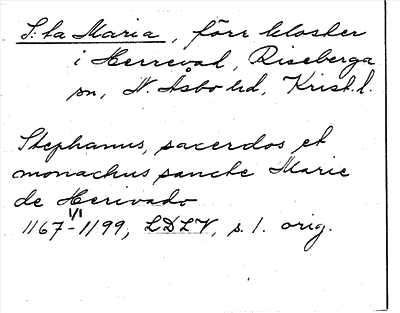 S:ta Maria, förr kloster
i Herrevad, Riseberga
sn, N. Åsbo hd, Krist. l.
Stephanus, sacerdos et
monachus sancte Marie
de Herivado
1167-1/1 1199, LDLV, s. 1. orig.